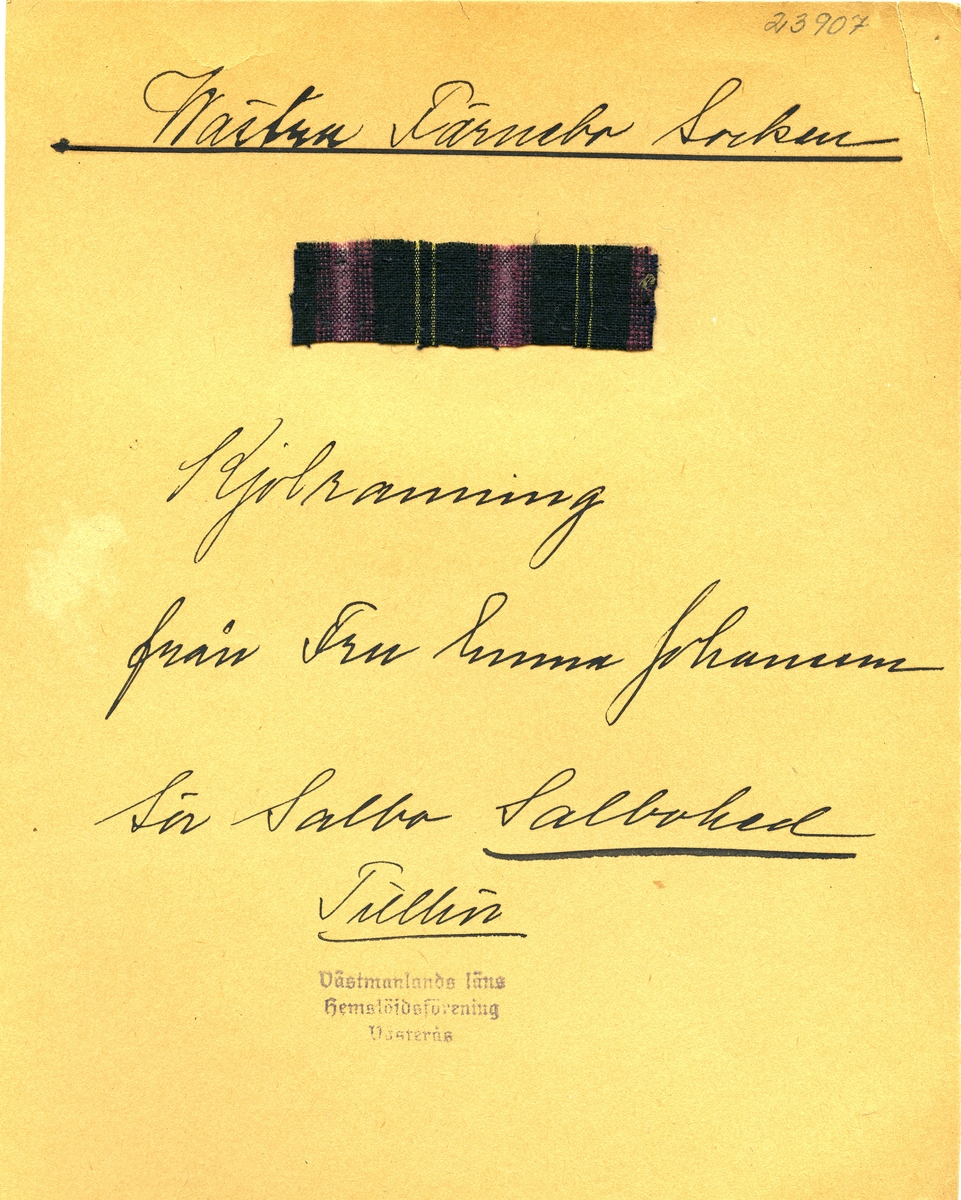 23907
Wästra Färnebo Socken
Kjolranning
från Fru Emma Johansson
Sör Salbo Salbohed
Tillhör
Västmanlands läns
Hemslöjdsförening
Västerås